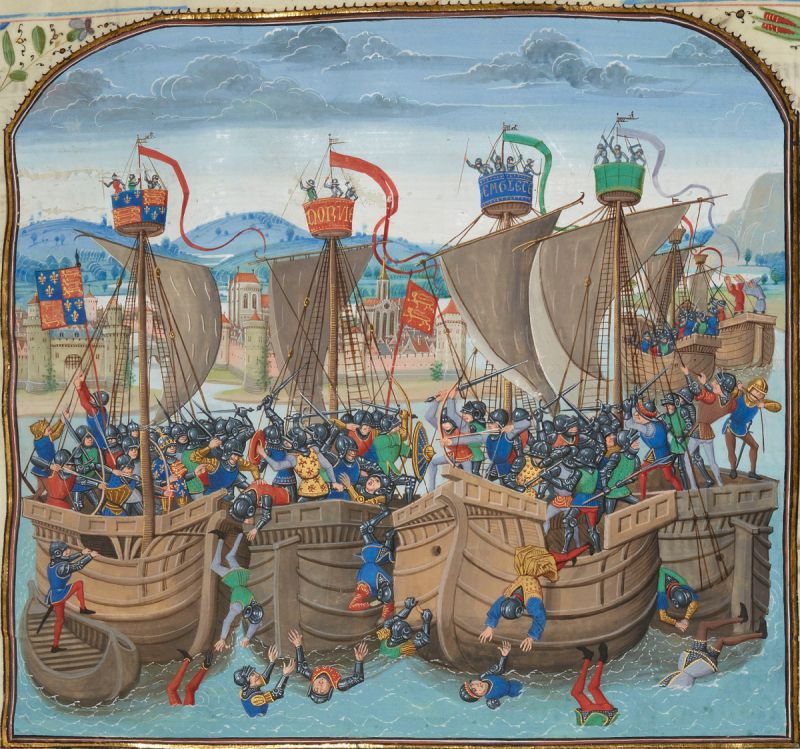 DORVI
EMOLECE